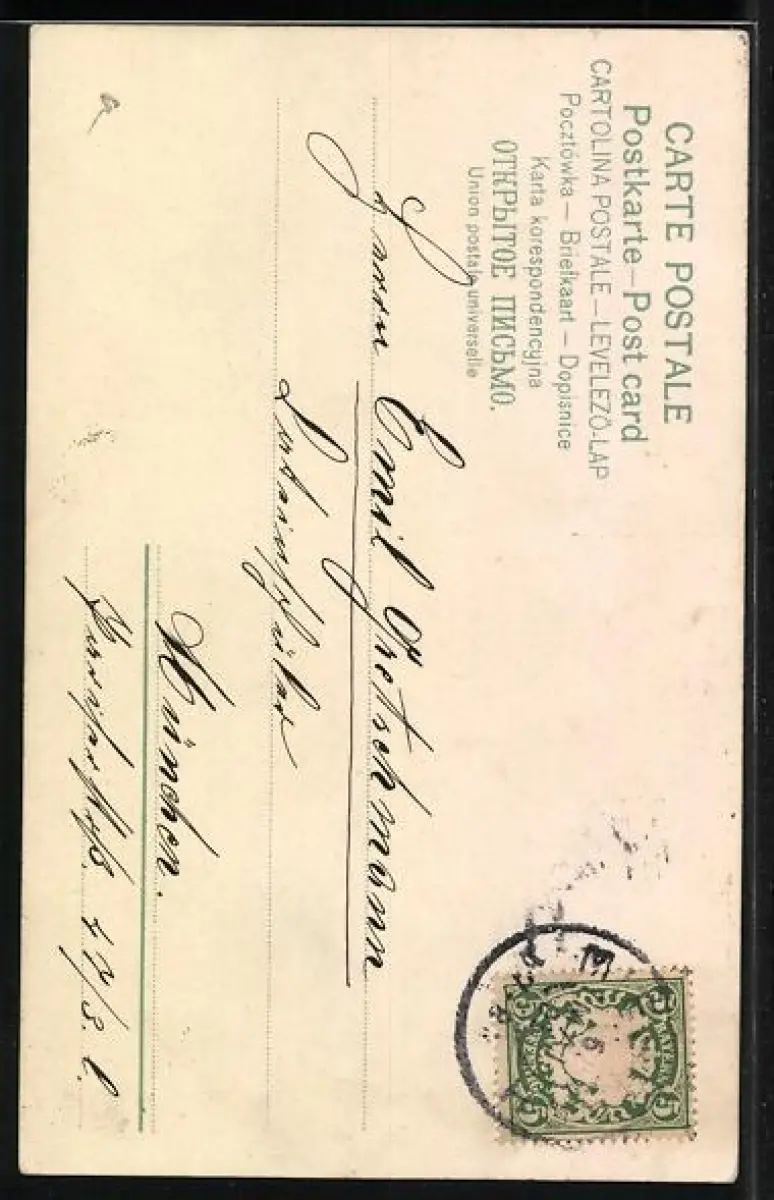 CARTE POSTALE
Postkarte—Post card
CARTOLINA POSTALE—LEVELEZŐ-LAP
Pocztówka — Briefkaart — Dopisnice
Karta korespondencyjna
ОТКРЫТОЕ ПИСЬМО.
Union postale universelle
Herrn Emil Gretschmann
München.
5 5
BAYERN
5 5